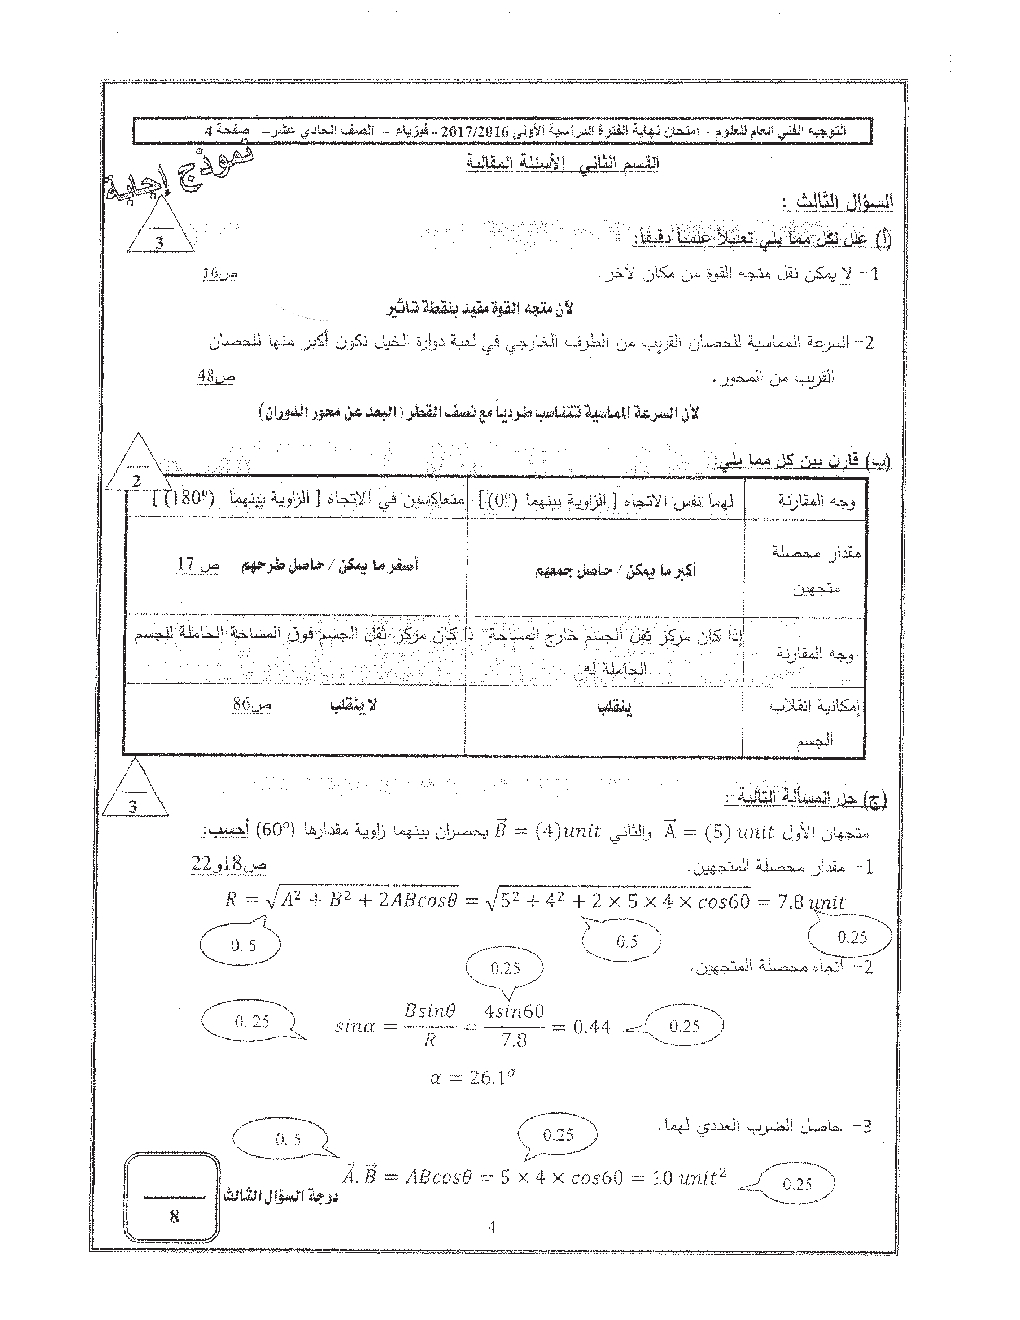 التوجيه الفني العام للعلوم - امتحان نهاية الفترة الدراسية الأولى 2017/2016 - فيزياء - الصف الحادي عشر – صفحة 4
نموذج إجابة
القسم الثاني الأسئلة المقالية
السؤال الثالث :
3
(أ) علل لكل مما يلي تعليلاً علمياً دقيقاً:
1- لا يمكن نقل متجه القوة من مكان لآخر. ص16
لأن متجه القوة مقيد بنقطة تأثير
2- السرعة المماسية للحصان القريب من الطرف الخارجي في لعبة دوارة الخيل تكون أكبر منها للحصان
القريب من المحور . ص48
لأن السرعة المماسية تتناسب طردياً مع نصف القطر (البعد عن محور الدوران)
2
(ب) قارن بين كل مما يلي:
وجه المقارنة لهما نفس الاتجاه [ الزاوية بينهما (0°)] متعاكسين في الاتجاه [ الزاوية بينهما (180°)]
مقدار محصلة متجهين أكبر ما يمكن / حاصل جمعهم أصغر ما يمكن / حاصل طرحهم ص 17
وجه المقارنة إذا كان مركز ثقل الجسم خارج المساحة الحاملة له إذا كان مركز ثقل الجسم فوق المساحة الحاملة للجسم
إمكانية انقلاب الجسم ينقلب لا ينقلب ص86
3
(ج) حل المسألة التالية :
متجهان الأول A⃗ = (5) unit والثاني B⃗ = (4)unit يحصران بينهما زاوية مقدارها (60°) أحسب:
1- مقدار محصلة المتجهين. ص18و22
R = √A² + B² + 2ABcosθ = √5² + 4² + 2 × 5 × 4 × cos60 = 7.8 unit
0.5 0.5 0.25
2- اتجاه محصلة المتجهين.
0.25
0.25 sinα = Bsinθ/R = 4sin60/7.8 = 0.44 0.25
α = 26.1°
3- حاصل الضرب العددي لهما.
0.5 0.25
A⃗.B⃗ = ABcosθ = 5 × 4 × cos60 = 10 unit² 0.25
درجة السؤال الثالث
8
4